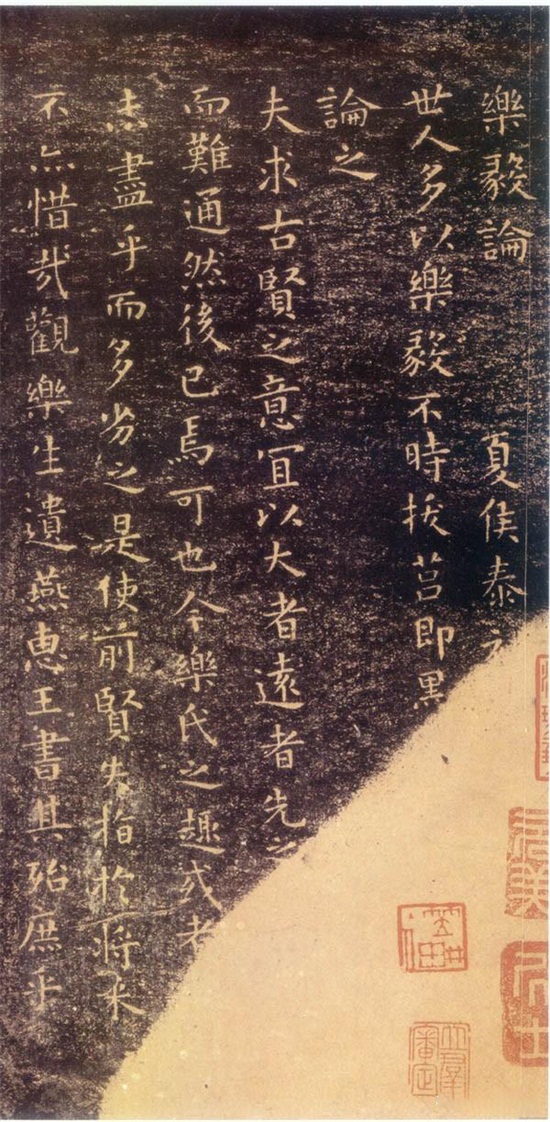 樂毅論 夏侯泰
世人多以樂毅不時拔莒即墨
論之
夫求古賢之意宜以大者遠者先之
而難通然後已焉可也今樂氏之趣或者
未盡乎而多劣之是使前賢失指於將來
不亦惜哉觀樂生遺燕惠王書其殆庶乎